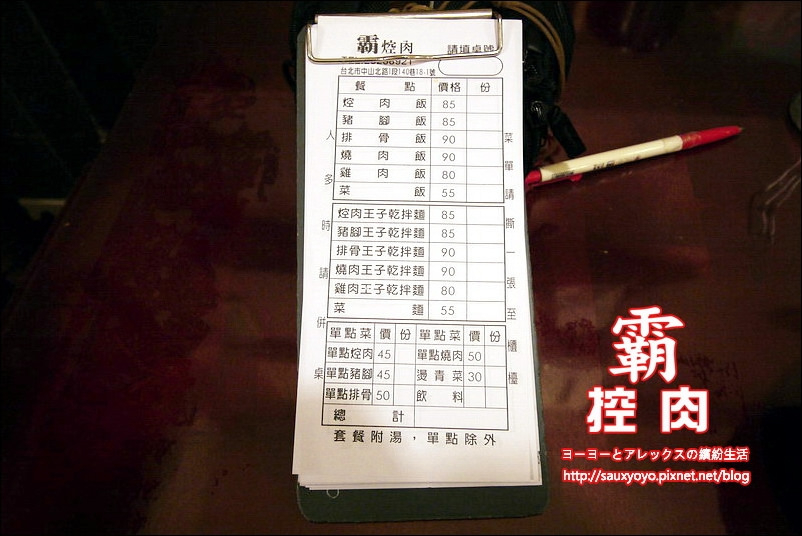 霸焢肉
請填桌號
台北市中山北路1段140巷18-1號
餐 點 價格 份
焢肉飯 85
豬腳飯 85
排骨飯 90
燒肉飯 90
雞肉飯 80
菜飯 55
焢肉王子乾拌麵 85
豬腳王子乾拌麵 85
排骨王子乾拌麵 90
燒肉王子乾拌麵 90
雞肉王子乾拌麵 80
菜麵 55
單點菜 價 份 單點菜 價 份
單點焢肉 45 單點燒肉 50
單點豬腳 45 燙青菜 30
單點排骨 50 飲料
總計
套餐附湯，單點除外
人多時請併桌
菜單請撕一張至櫃檯
霸
控肉
ヨーヨーとアレックスの繽紛生活
http://sauxyoyo.pixnet.net/blog